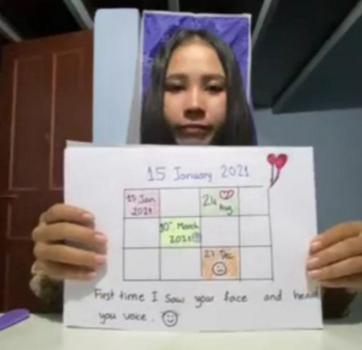 15 January 2021
15 Jan
2021
24
Aug
30th March
2021!!!
27 Dec
First time I saw your face and heard
you voice.